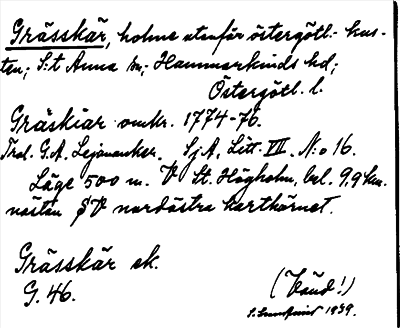 Grässkär, holme utanför östergötl. kus-
ten; S:t Anna sn; Hammarkinds hd;
Östergötl. l.
Gräskiär omkr. 1774-76.
Trol. G.A. Lejonancker. Sj.A. Litt. VII. N:o 16.
Läge 500 m. V St. Högholm, bel. 9,9 km.
nästan SV nordöstra karthörnet.
Grässkär ek.
G. 46.
(Väud!)
S. 1939.